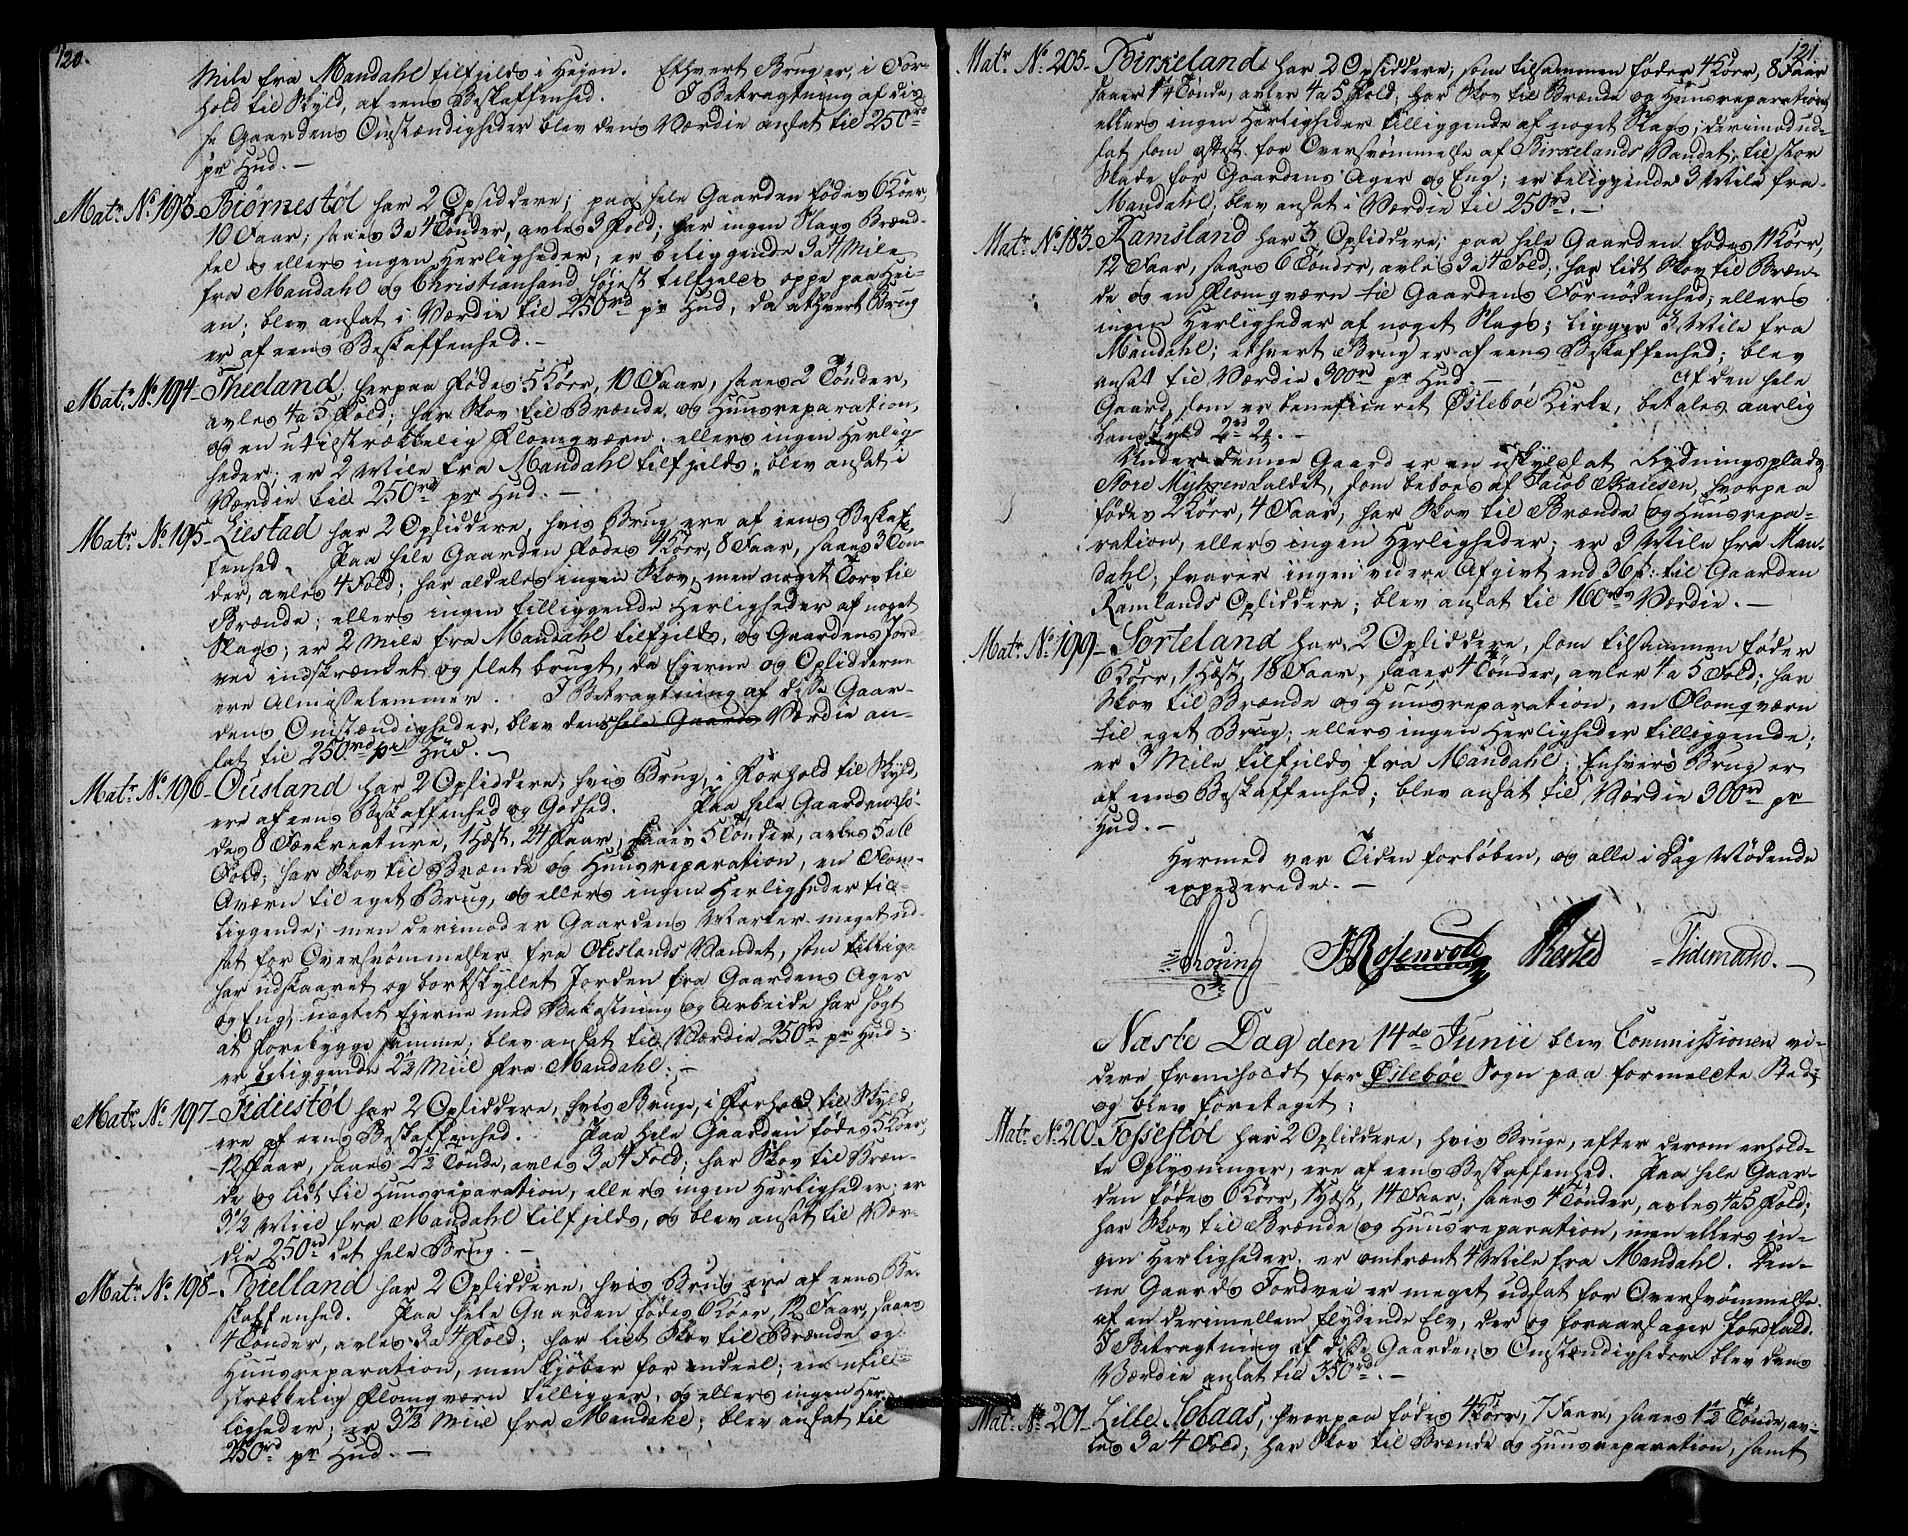 120.
Mile fra Mandahl tilfjelds i Heien. Ethvert Brug er, i For-
hold til Skyld, af eens Beskaffenhed. I Betragtning af dis-
se Gaardens Omstændigheder blev dens Værdie ansat til 250rd
pr Hud. —
Matr. No. 193. Biörnestöl har 2 Opsiddere; paa hele Gaarden födes 6 Köer,
10 Faar; saaes 3 a 4 Tönder, avles 3 Fold; har ingen Slags Brænd-
sel og ellers ingen Herligheder; er beliggende 3 a 4 Mile
fra Mandahl og Christiansand höiest tilfjelds oppe paa Hei-
en; blev ansat i Værdie til 250rd pr Hud, da ethvert Brug
er af eens Beskaffenhed. —
Matr. No. 194 Theeland, herpaa födes 5 Köer, 10 Faar, saaes 2 Tönder,
avles 4 a 5 Fold; har Skov til Brænde og Huusreparation,
og en utilstrækkelig Flomqværn, ellers ingen Herlig-
heder; er 2 Mile fra Mandahl tilfjelds; blev ansat i
Værdie til 250rd pr Hud. —
Matr. No. 195 Liestad har 2 Opsiddere, hvis Brug ere af eens Beskaf-
fenhed. Paa hele Gaarden födes 4 Köer, 8 Faar, saaes 3 Tön-
der, avles 4 Fold; har aldeles ingen Skov, men noget Torv til
Brænde; ellers ingen tilliggende Herligheder af noget
Slags; er 2 Mile fra Mandahl tilfjelds, og Gaardens Jord-
vei indskrænket og slet brugt, da Eierne og Opsidderne
ere Almisselemmer. I Betragtning af disse Gaar-
dens Omstændigheder, blev dens hele Gaards Værdie an-
sat til 250rd pr Hud. —
Matr. No. 196 Ousland har 2 Opsiddere, hvis Brug, i Forhold til Skyld,
ere af eens Beskaffenhed og Godhed. Paa hele Gaarden fö-
des 8 Fækreature, 1 Hæst, 24 Faar, saaes 5 Tönder, avles 5 a 6
Fold; har Skov til Brænde og Huusreparation, en Flom-
qværn til eget Brug, og ellers ingen Herligheder til-
liggende; men derimod er Gaardens Marker meget ud-
sat for Oversvömmelser fra Ouslands Vandet, som tillige
har udskaaret og bortskyllet Jorden fra Gaardens Ager
og Eng, uagtet Eierne med Bekostning og Arbeide har sögt
at forebygge samme; blev ansat til Værdie 250rd pr Hud;
er beliggende 2½ Miil fra Mandahl; —
Matr. No. 197 Sidiestöl har 2 Opsiddere, hvis Bruge, i Forhold til Skyld,
ere af eens Beskaffenhed. Paa hele Gaarden födes 5 Köer,
12 Faar, saaes 2½ Tönde, avles 3 a 4 Fold; har Skov til Bræn-
de og lidt til Huusreparation, ellers ingen Herligheder; er
3½ Miil fra Mandahl tilfjelds, og blev ansat til Vær-
die 250rd det hele Brug. —
Matr. No. 198 Bielland har 2 Opsiddere, hvis Brug ere af eens Be-
skaffenhed. Paa hele Gaarden födes 6 Köer, 12 Faar, saaes
4 Tönder, avles 3 a 4 Fold; har lidt Skov til Brænde og
Huusreparation, men kjöber for endeel; en util-
strækkelig Flomqværn tilligger, og ellers ingen Her-
ligheder; er 3½ Miil fra Mandahl; blev ansat til
250rd pr Hud. —
121.
Matr. No. 205. Birkeland har 2 Opsiddere; som tilsammen föder 4 Köer, 8 Faar
saaer 1¼ Tönde, avler 4 a 5 Fold; har Skov til Brænde og Huusreparation
ellers ingen Herligheder tilliggende af noget Slags; derimod ud-
sat som oftest for Oversvömmelse af Birkelands Vandet, til stor
Skade for Gaardens Ager og Eng; er beliggende 3 Mile fra
Mandahl; blev ansat i Værdie til 250rd. —
Matr. No. 183. Ramsland har 3 Opsiddere; paa hele Gaarden födes 11 Köer,
12 Faar, saaes 6 Tönder, avles 3 a 4 Fold; har lidt Skov til Bræn-
de og en Flomqværn til Gaardens Fornödenhed, ellers
ingen Herligheder af noget Slags; ligger 3 Mile fra
Mandahl; ethvert Brug er af eens Beskaffenhed; blev
ansat til Værdie 300rd pr Hud. — Af den hele
Gaard, som er beneficeret Ösleböe Kirke, betales aarlig
Landskyld 2rd 2
Under denne Gaard er en uskyldsat Rydningsplads,
Store Myhren kaldet, som beboes af Jacob Isaacsen, hvorpaa
födes 2 Köer, 4 Faar; har Skov til Brænde og Huusrepa-
ration, ellers ingen Herligheder; er 3 Mile fra Man-
dahl; svarer ingen videre Afgivt end 36 s: til Gaarden
Ramlands Opsiddere; blev ansat til 160rds Værdie. —
Matr. No. 199 Sorteland har 2 Opsiddere, som tilsammen föder
6 Köer, 1 Hæst, 18 Faar, saaer 4 Tönder, avler 4 a 5 Fold; har
Skov til Brænde og Huusreparation, en Flomqværn
til eget Brug; ellers ingen Herligheder tilliggende;
er 3 Mile tilfjelds fra Mandahl; Enhvers Brug er
af eens Beskaffenhed; blev ansat til Værdie 300rd pr
Hud. —
Hermed var Tiden forlöben, og alle i Dag Mödende
expederede. —
Rosenvold Tidemand.
Næste Dag den 14de Junii blev Commissionen vi-
dere fremholdt for Ösleböe Sogn paa formeldte Sted
og blev foretaget:
Matr. No. 200 Fossestöl har 2 Opsiddere, hvis Bruge, efter derom erhold-
te Oplysninger, ere af eens Beskaffenhed. Paa hele Gaar-
den födes 6 Köer, 1 Hæst, 14 Faar; saaes 4 Tönder, avles 4 a 5 Fold;
har Skov til Brænde og Huusreparation, men ellers in-
gen Herligheder; er omtrent 4 Mile fra Mandahl. Den-
ne Gaards Jordvei er meget udsat for Oversvömmelse
af en derimellem flydende Elv, der og foraarsager Jordfald.
I Betragtning af disse Gaardens Omstændigheder blev dens
Værdie ansat til 350rd. —
Matr. No. 201 Lille Aolaas, hvorpaa födes 4 Köer, 7 Faar, saaes 1½ Tönde, av-
les 3 a 4 Fold; har Skov til Brænde og Huusreparation, samt